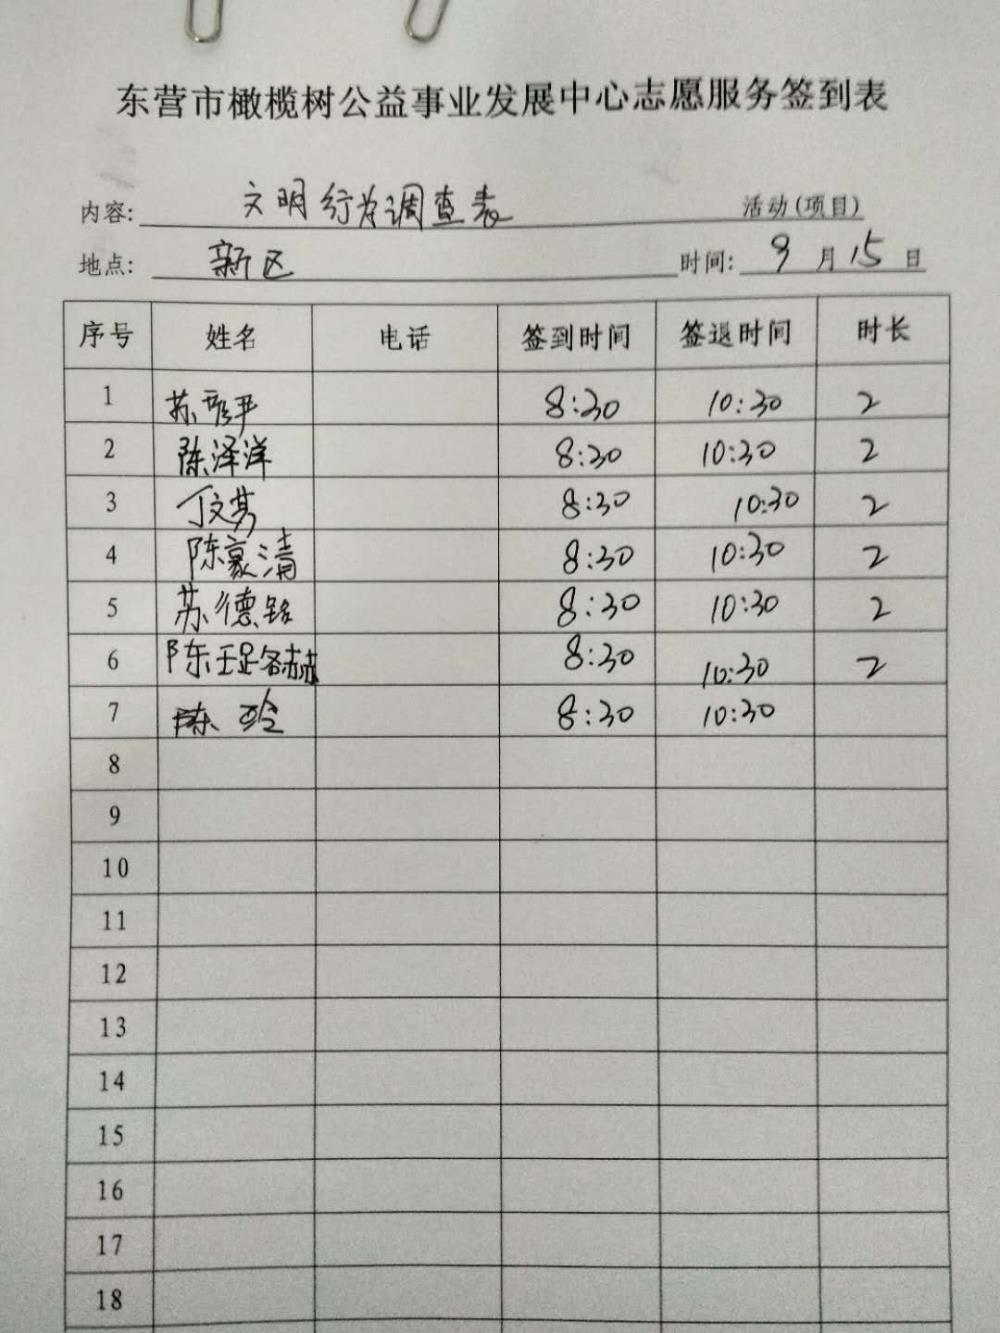 东营市橄榄树公益事业发展中心志愿服务签到表
内容: 文明行为调查表 活动(项目)
地点: 新区 时间: 9月15日
序号 姓名 电话 签到时间 签退时间 时长
1 苏彦平 8:30 10:30 2
2 陈泽洋 8:30 10:30 2
3 丁文 8:30 10:30 2
4 陈豪清 8:30 10:30 2
5 苏德铭 8:30 10:30 2
6 陈 8:30 10:30 2
7 陈玲 8:30 10:30
8
9
10
11
12
13
14
15
16
17
18